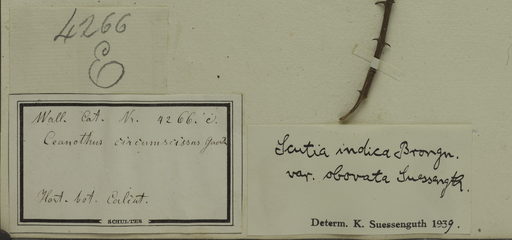 4266
E
Wall. Cat. Nr. 4266. E.
Ceanothus circumscissus Gaertn
Hort. bot. Calcut.
SCHULTES
Scutia indica Brongn.
var. obovata Suessength.
Determ. K. Suessenguth 1939.